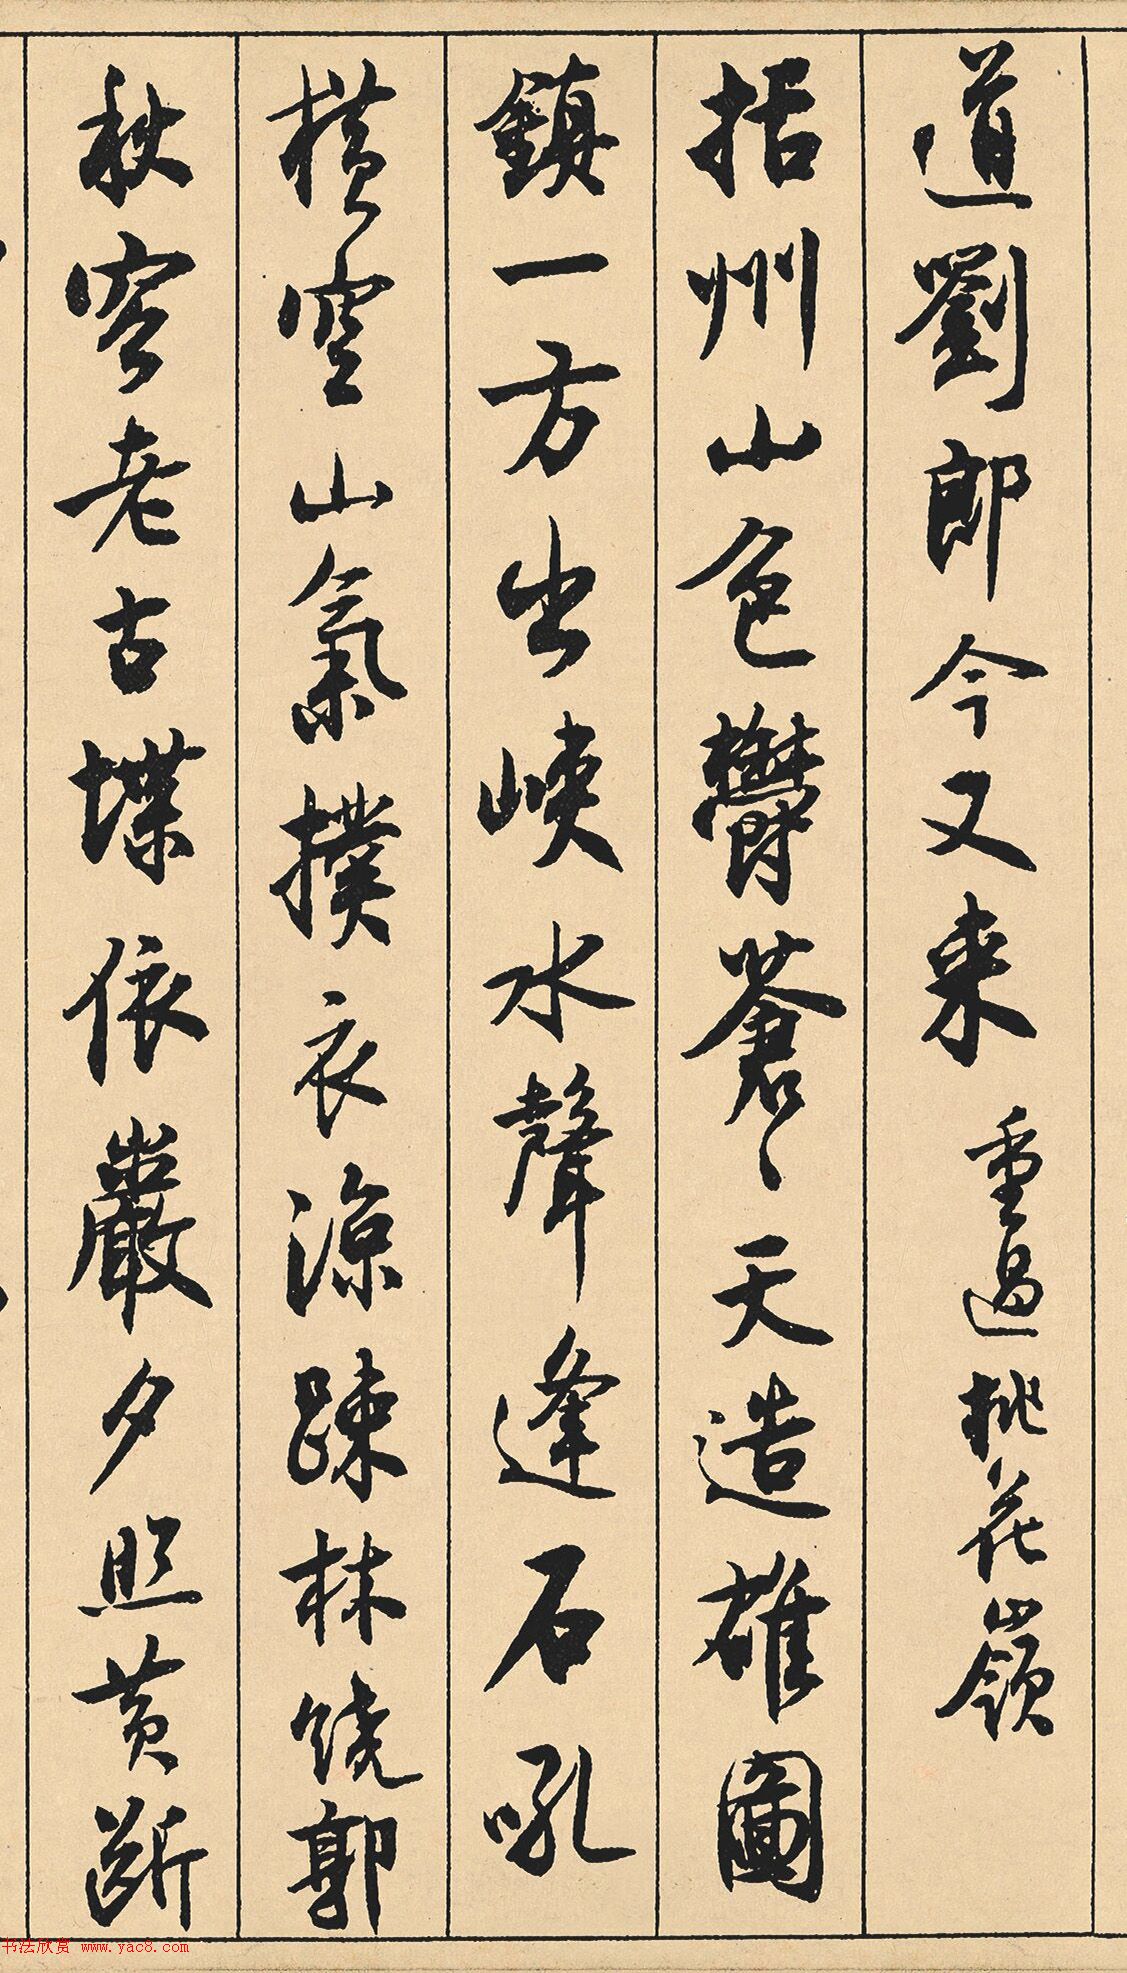 道劉郎今又来 重過桃花嶺
括州山色鬱蒼々天造雄圖
鎮一方出峽水聲逢石吼
横空山氣撲衣涼踈林饒郭
秋容老古堞依巖夕照黄断
书法欣赏 www.yac8.com